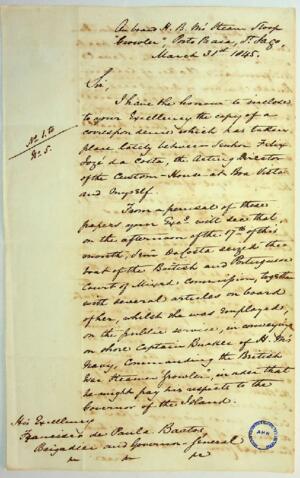 On board H. B. M's Steam Sloop
"Growler", Porto Praia, St. Jago,
March 31st 1845.
Sir,
I have the honour to inclose
to your Excellency the copy of a
correspondence which has taken
place lately between Senhor Felix
José da Costa, the Acting Director
of the Custom-House at Boa Vista
and myself.
No. 1. to
No. 5.
From a perusal of these
papers your Excy. will see that
on the afternoon of the 17th of this
month, Senr. Da Costa seized the
boat of the British and Portuguese
Court of Mixed Commission, together
with several articles on board
of her, whilst she was employed,
on the public service, in conveying
on shore Captain Buckle of H. M's
Navy, Commanding the British
War Steamer "Growler", in order that
he might pay his respects to the
Governor of the Island.
His Excellency
Francisco de Paula Bastos
Brigadier and Governor-General